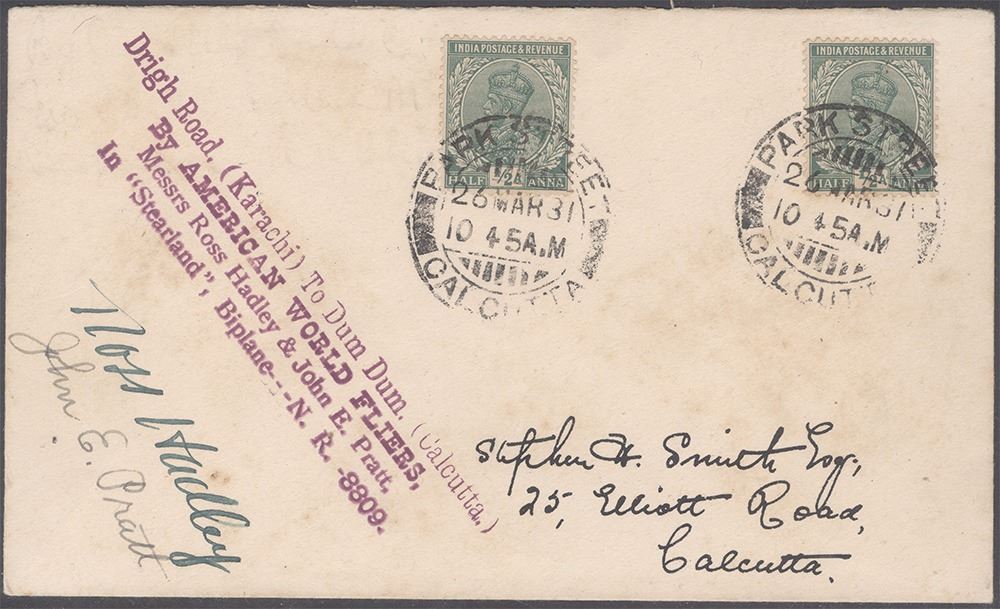 INDIA POSTAGE & REVENUE
HALF ½A ANNA
PARK STREET
26 MAR 31
10 45 A.M
CALCUTTA
INDIA POSTAGE & REVENUE
HALF ½A ANNA
PARK STREET
26 MAR 31
10 45 A.M
CALCUTTA
Drigh Road, (Karachi) To Dum Dum. (Calcutta.)
By AMERICAN WORLD FLIERS,
Messrs Ross Hadley & John E. Pratt,
In "Stearland", Biplane---N. R. -8809.
Ross Hadley
John E. Pratt
Stephen H. Smith Esq,
25, Elliott Road,
Calcutta.